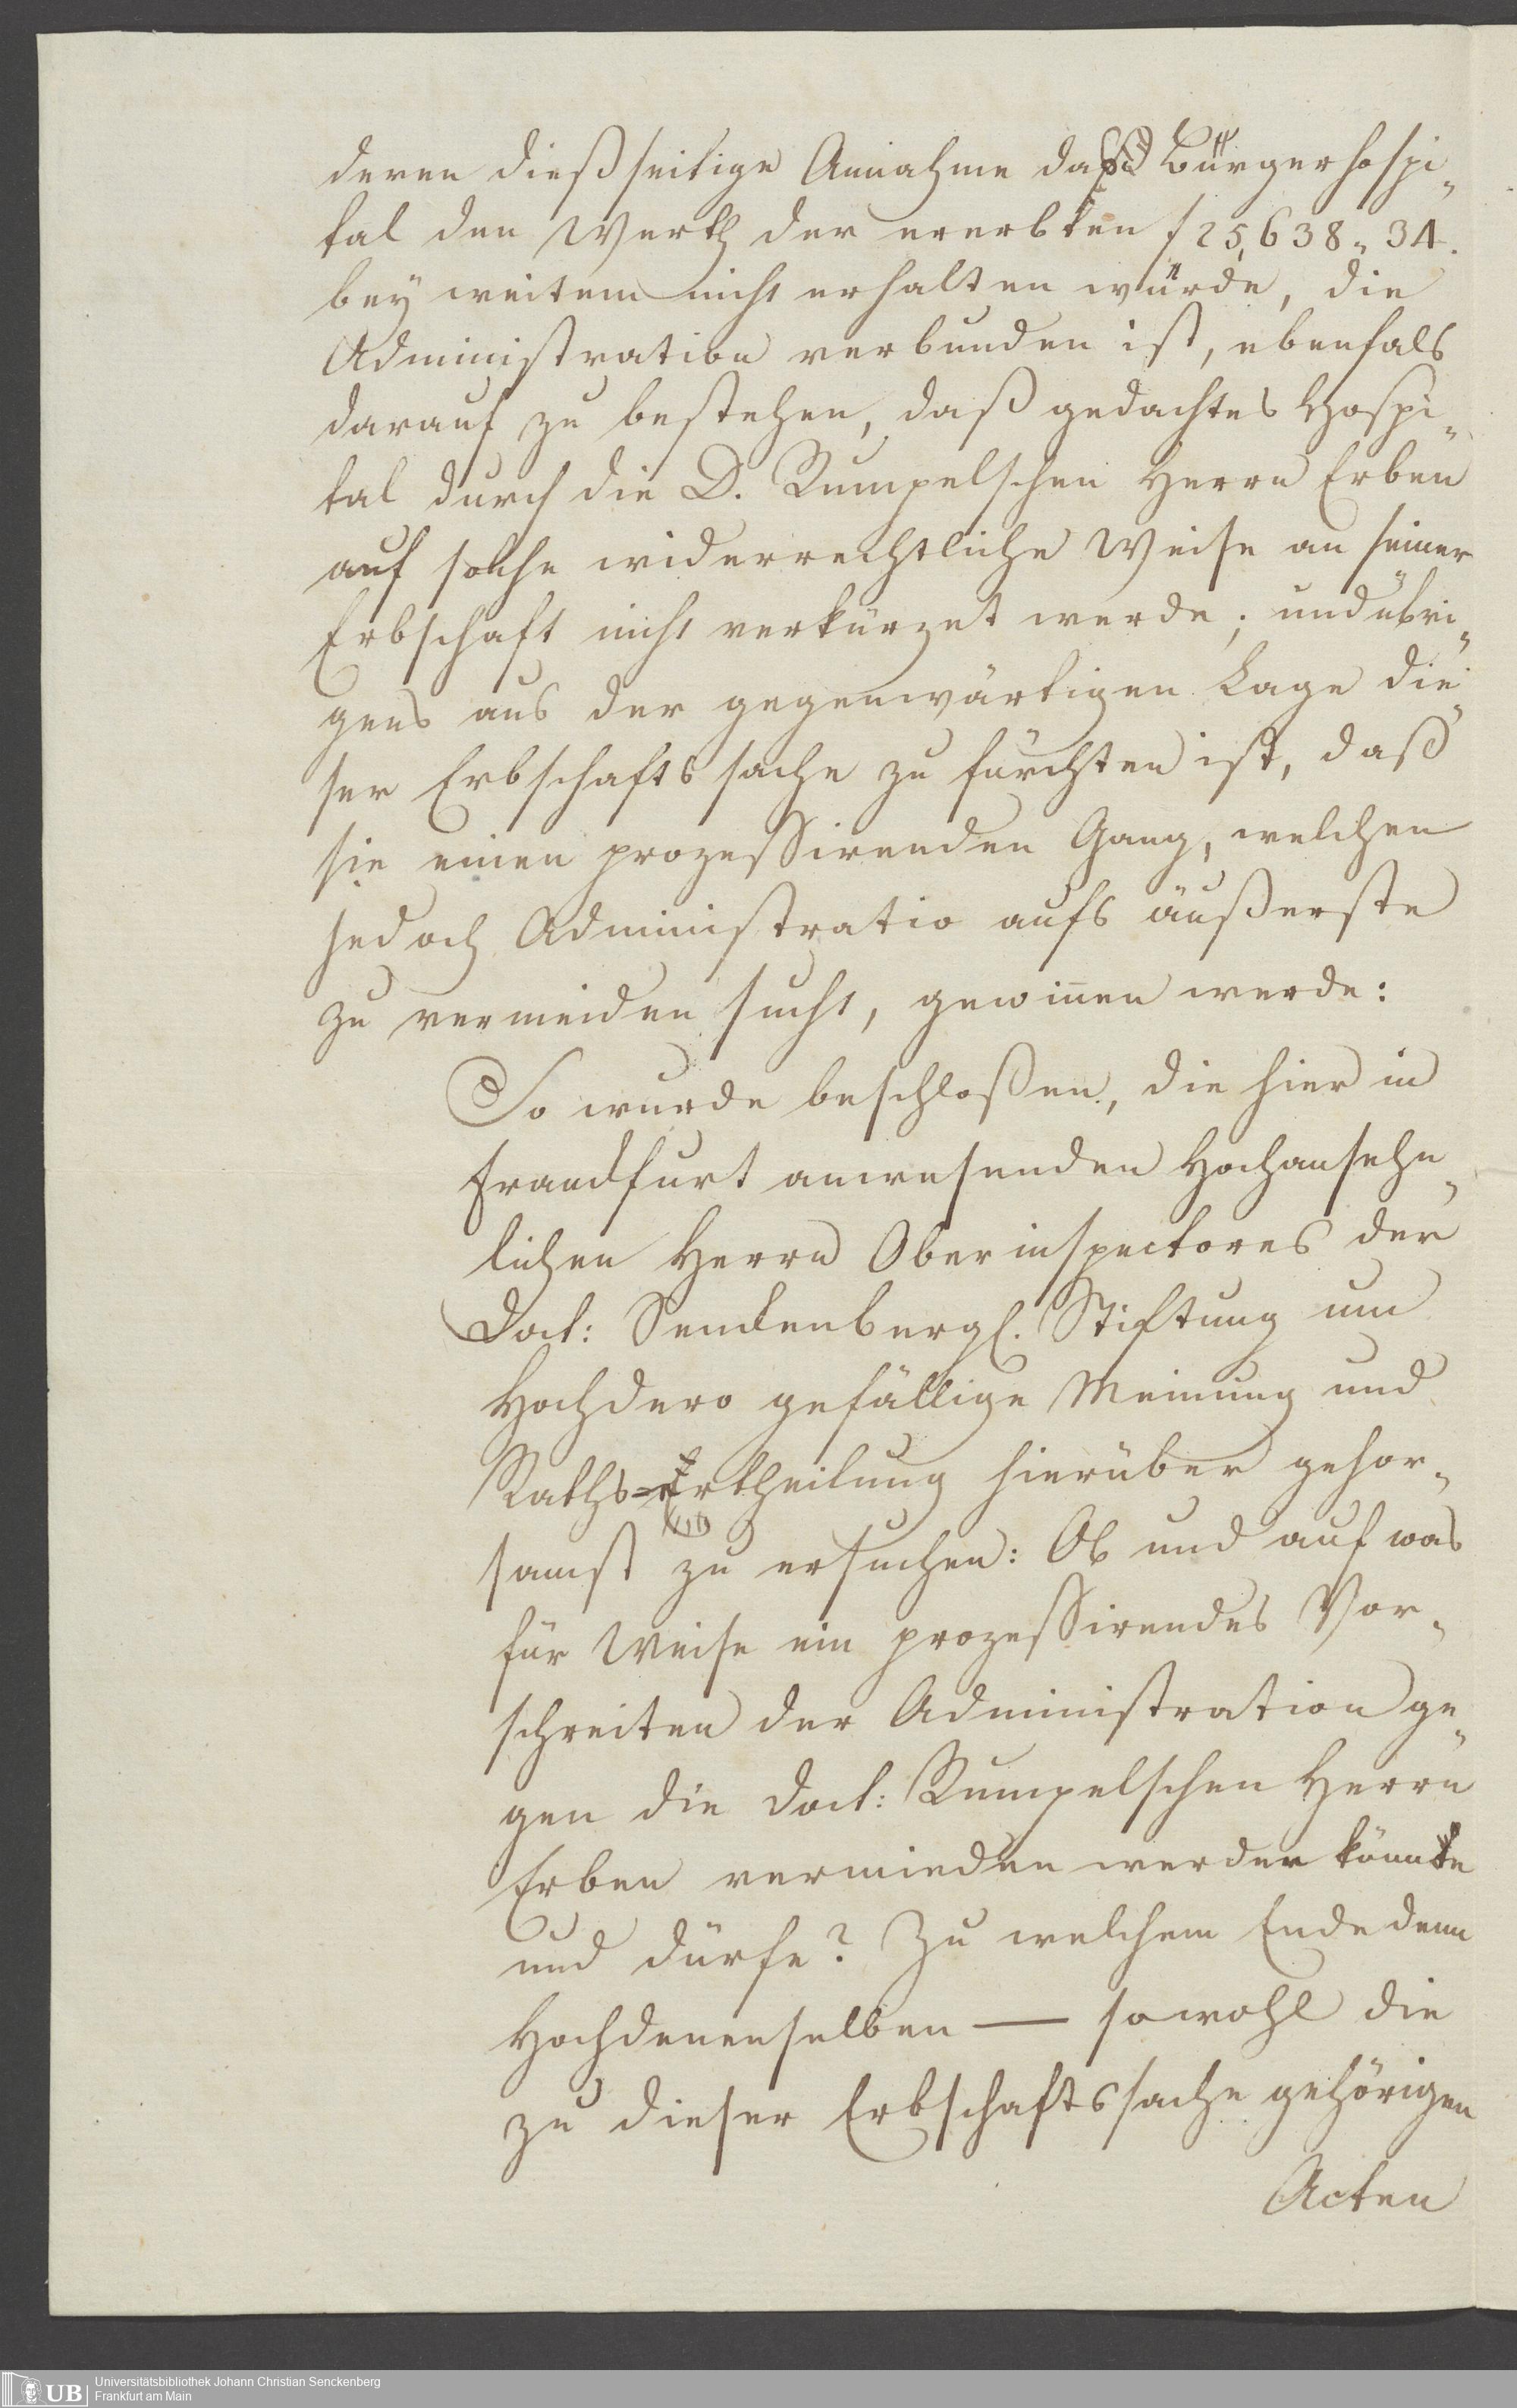 deren dießseitige Annahme das Bürgerhospi„
tal den Werth der ererbten f 25,638„ 34.
bey weitem nicht erhalten würde, die
Administration verbunden ist, ebenfals
darauf zu bestehen, daß gedachtes Hospi„
tal durch die D. Rumpelschen Herrn Erben
auf solche widerrechtliche Weise an seiner
Erbschaft nicht verkürzet werde; und übri„
gens aus der gegenwärtigen Lage die„
ser Erbschaftssache zu fürchten ist, daß
sie einen prozessirenden Gang, welchen
jedoch Administratio aufs äußerste
zu vermeiden sucht, gewinnen werde:
So wurde beschloßen, die hier in
Franckfurt anwesenden Hochansehn„
lichen Herrn Oberinspectores der
Doct: Senckenbergl. Stiftung um
Hochdero gefällige Meinung und
Raths-Ertheilung hierüber gehor„
samst zu ersuchen: Ob und auf was
für Weise ein prozessirendes Vor„
schreiten der Administration ge„
gen die Doct: Rumpelschen Herrn
Erben vermieden werden könnte
und dürfe? Zu welchem Ende denn
Hochdenenselben — sowohl die
zu dieser Erbschaftssache gehörigen
Acten
UB
Universitätsbibliothek Johann Christian Senckenberg
Frankfurt am Main